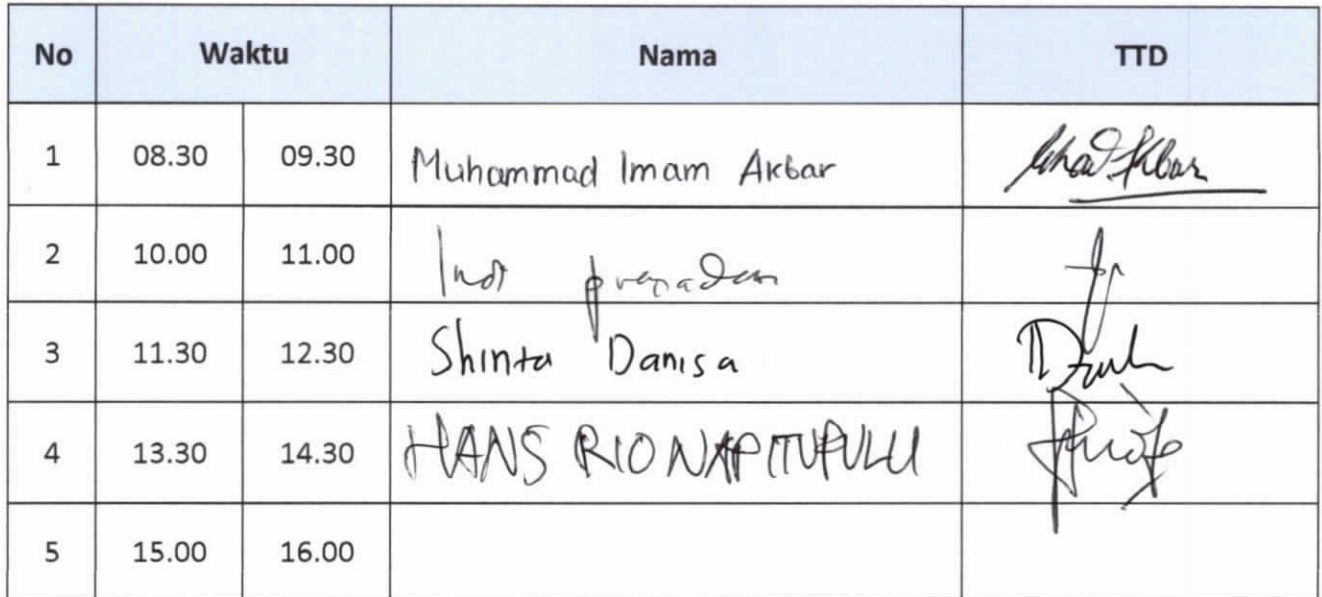 No Waktu Nama TTD
1 08.30 09.30 Muhammad Imam Akbar
2 10.00 11.00
3 11.30 12.30 Shinta Danisa
4 13.30 14.30 HANS RIO NAPITUPULU
5 15.00 16.00